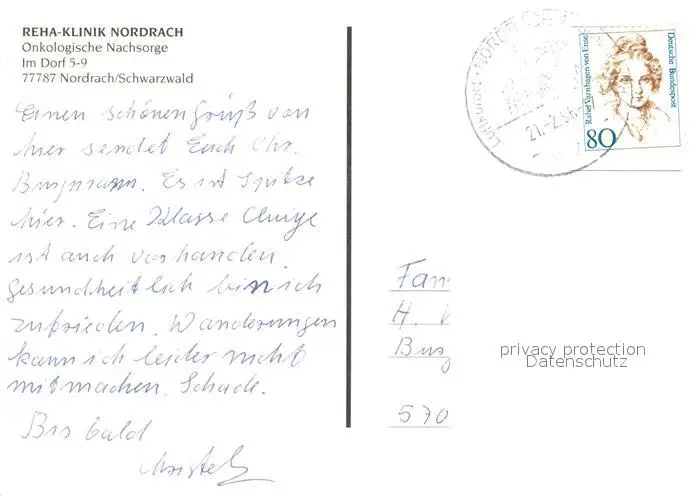 REHA-KLINIK NORDRACH
Onkologische Nachsorge
Im Dorf 5-9
77787 Nordrach/Schwarzwald
Einen schönen Gruß von
hier sendet Euch Chr.
Es ist Spitze
hier. Eine Klasse Clique
ist auch vorhanden.
Gesundheitlich bin ich
zufrieden. Wanderungen
kann ich leider nicht
mitmachen. Schade.
Bis bald
Christel
NORDRACH
Rahel Varnhagen von Ense
Deutsche Bundespost
80
Fam
H.
Burg
570
privacy protection
Datenschutz